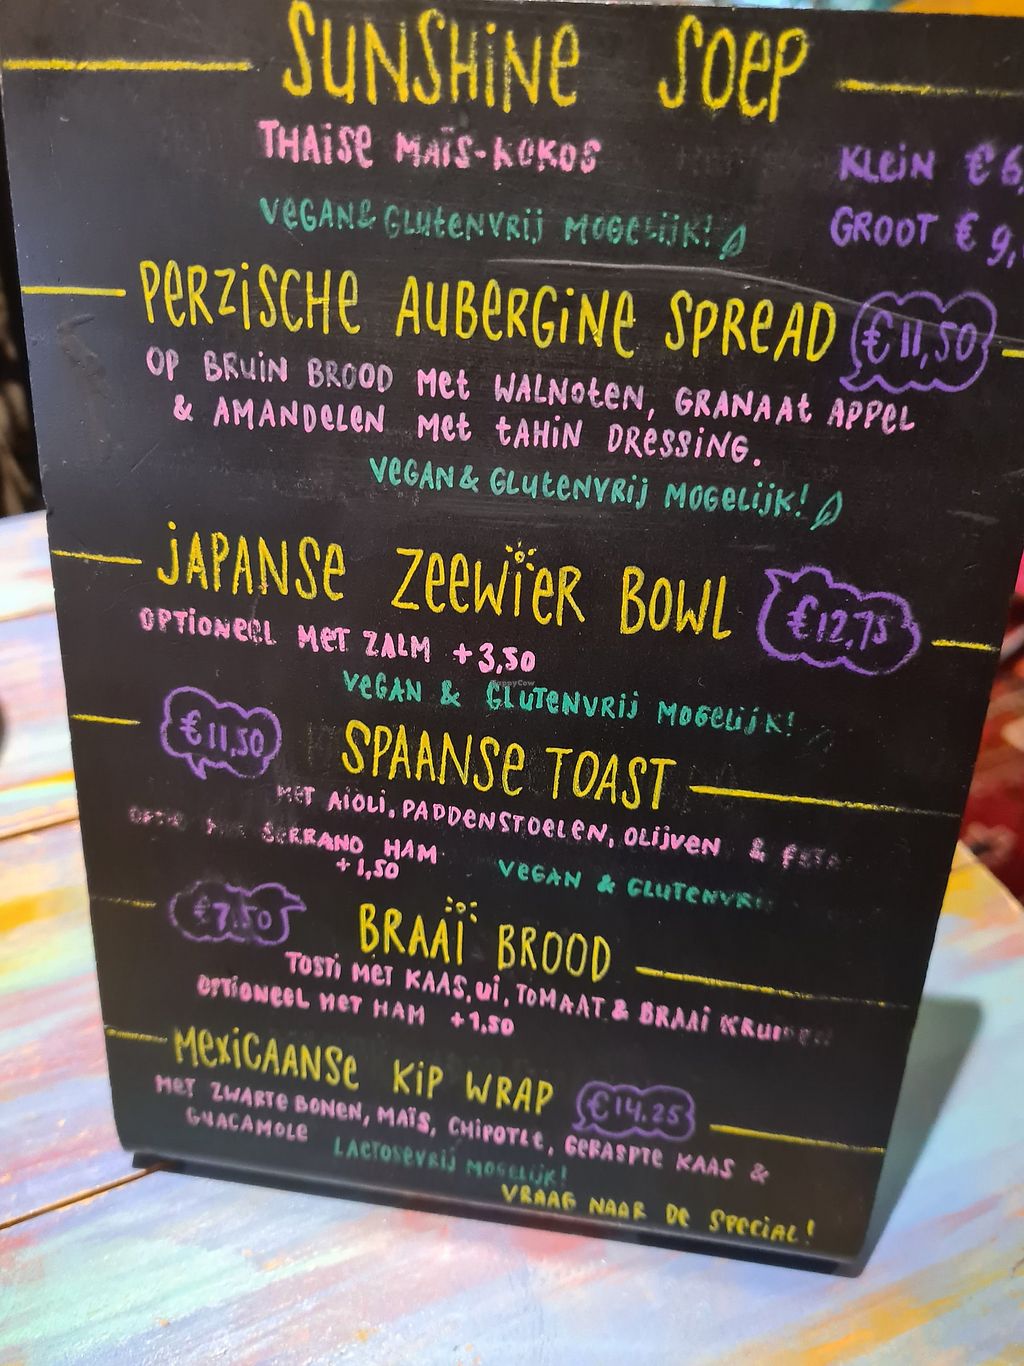 SUNSHINE SOEP
THAISE MAÏS-KOKOS
KLEIN € 6,
VEGAN & GLUTENVRIJ MOGELIJK!
GROOT € 9,
PERZISCHE AUBERGINE SPREAD €11,50
OP BRUIN BROOD MET WALNOTEN, GRANAAT APPEL
& AMANDELEN MET TAHIN DRESSING.
VEGAN & GLUTENVRIJ MOGELIJK!
JAPANSE ZEEWIER BOWL €12,75
OPTIONEEL MET ZALM +3,50
HappyCow
VEGAN & GLUTENVRIJ MOGELIJK!
€11,50 SPAANSE TOAST
MET AIOLI, PADDENSTOELEN, OLIJVEN & FETA
SERRANO HAM
+1,50
VEGAN & GLUTENVRIJ
€7,50 BRAAI BROOD
TOSTI MET KAAS, UI, TOMAAT & BRAAI KRUIDEN
OPTIONEEL MET HAM +1,50
MEXICAANSE KIP WRAP €14,25
MET ZWARTE BONEN, MAÏS, CHIPOTLE, GERASPTE KAAS &
GUACAMOLE
LACTOSEVRIJ MOGELIJK!
VRAAG NAAR DE SPECIAL!